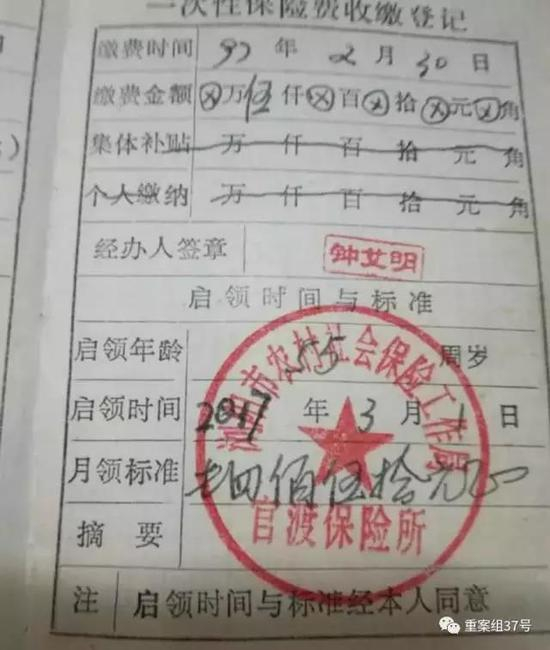 一次性保险费收缴登记
缴费时间 97 年 2 月 30 日
缴费金额 ⊗万伍仟⊗百⊗拾⊗元⊗角
集体补贴 万 仟 百 拾 元 角
个人缴纳 万 仟 百 拾 元 角
经办人签章 钟艾明
启领时间与标准
启领年龄 55 周岁
启领时间 2017 年 3 月 1 日
月领标准 佰伍拾元正
摘 要
浏阳市农村社会保险工作局
官渡保险所
注 启领时间与标准经本人同意
重案组37号